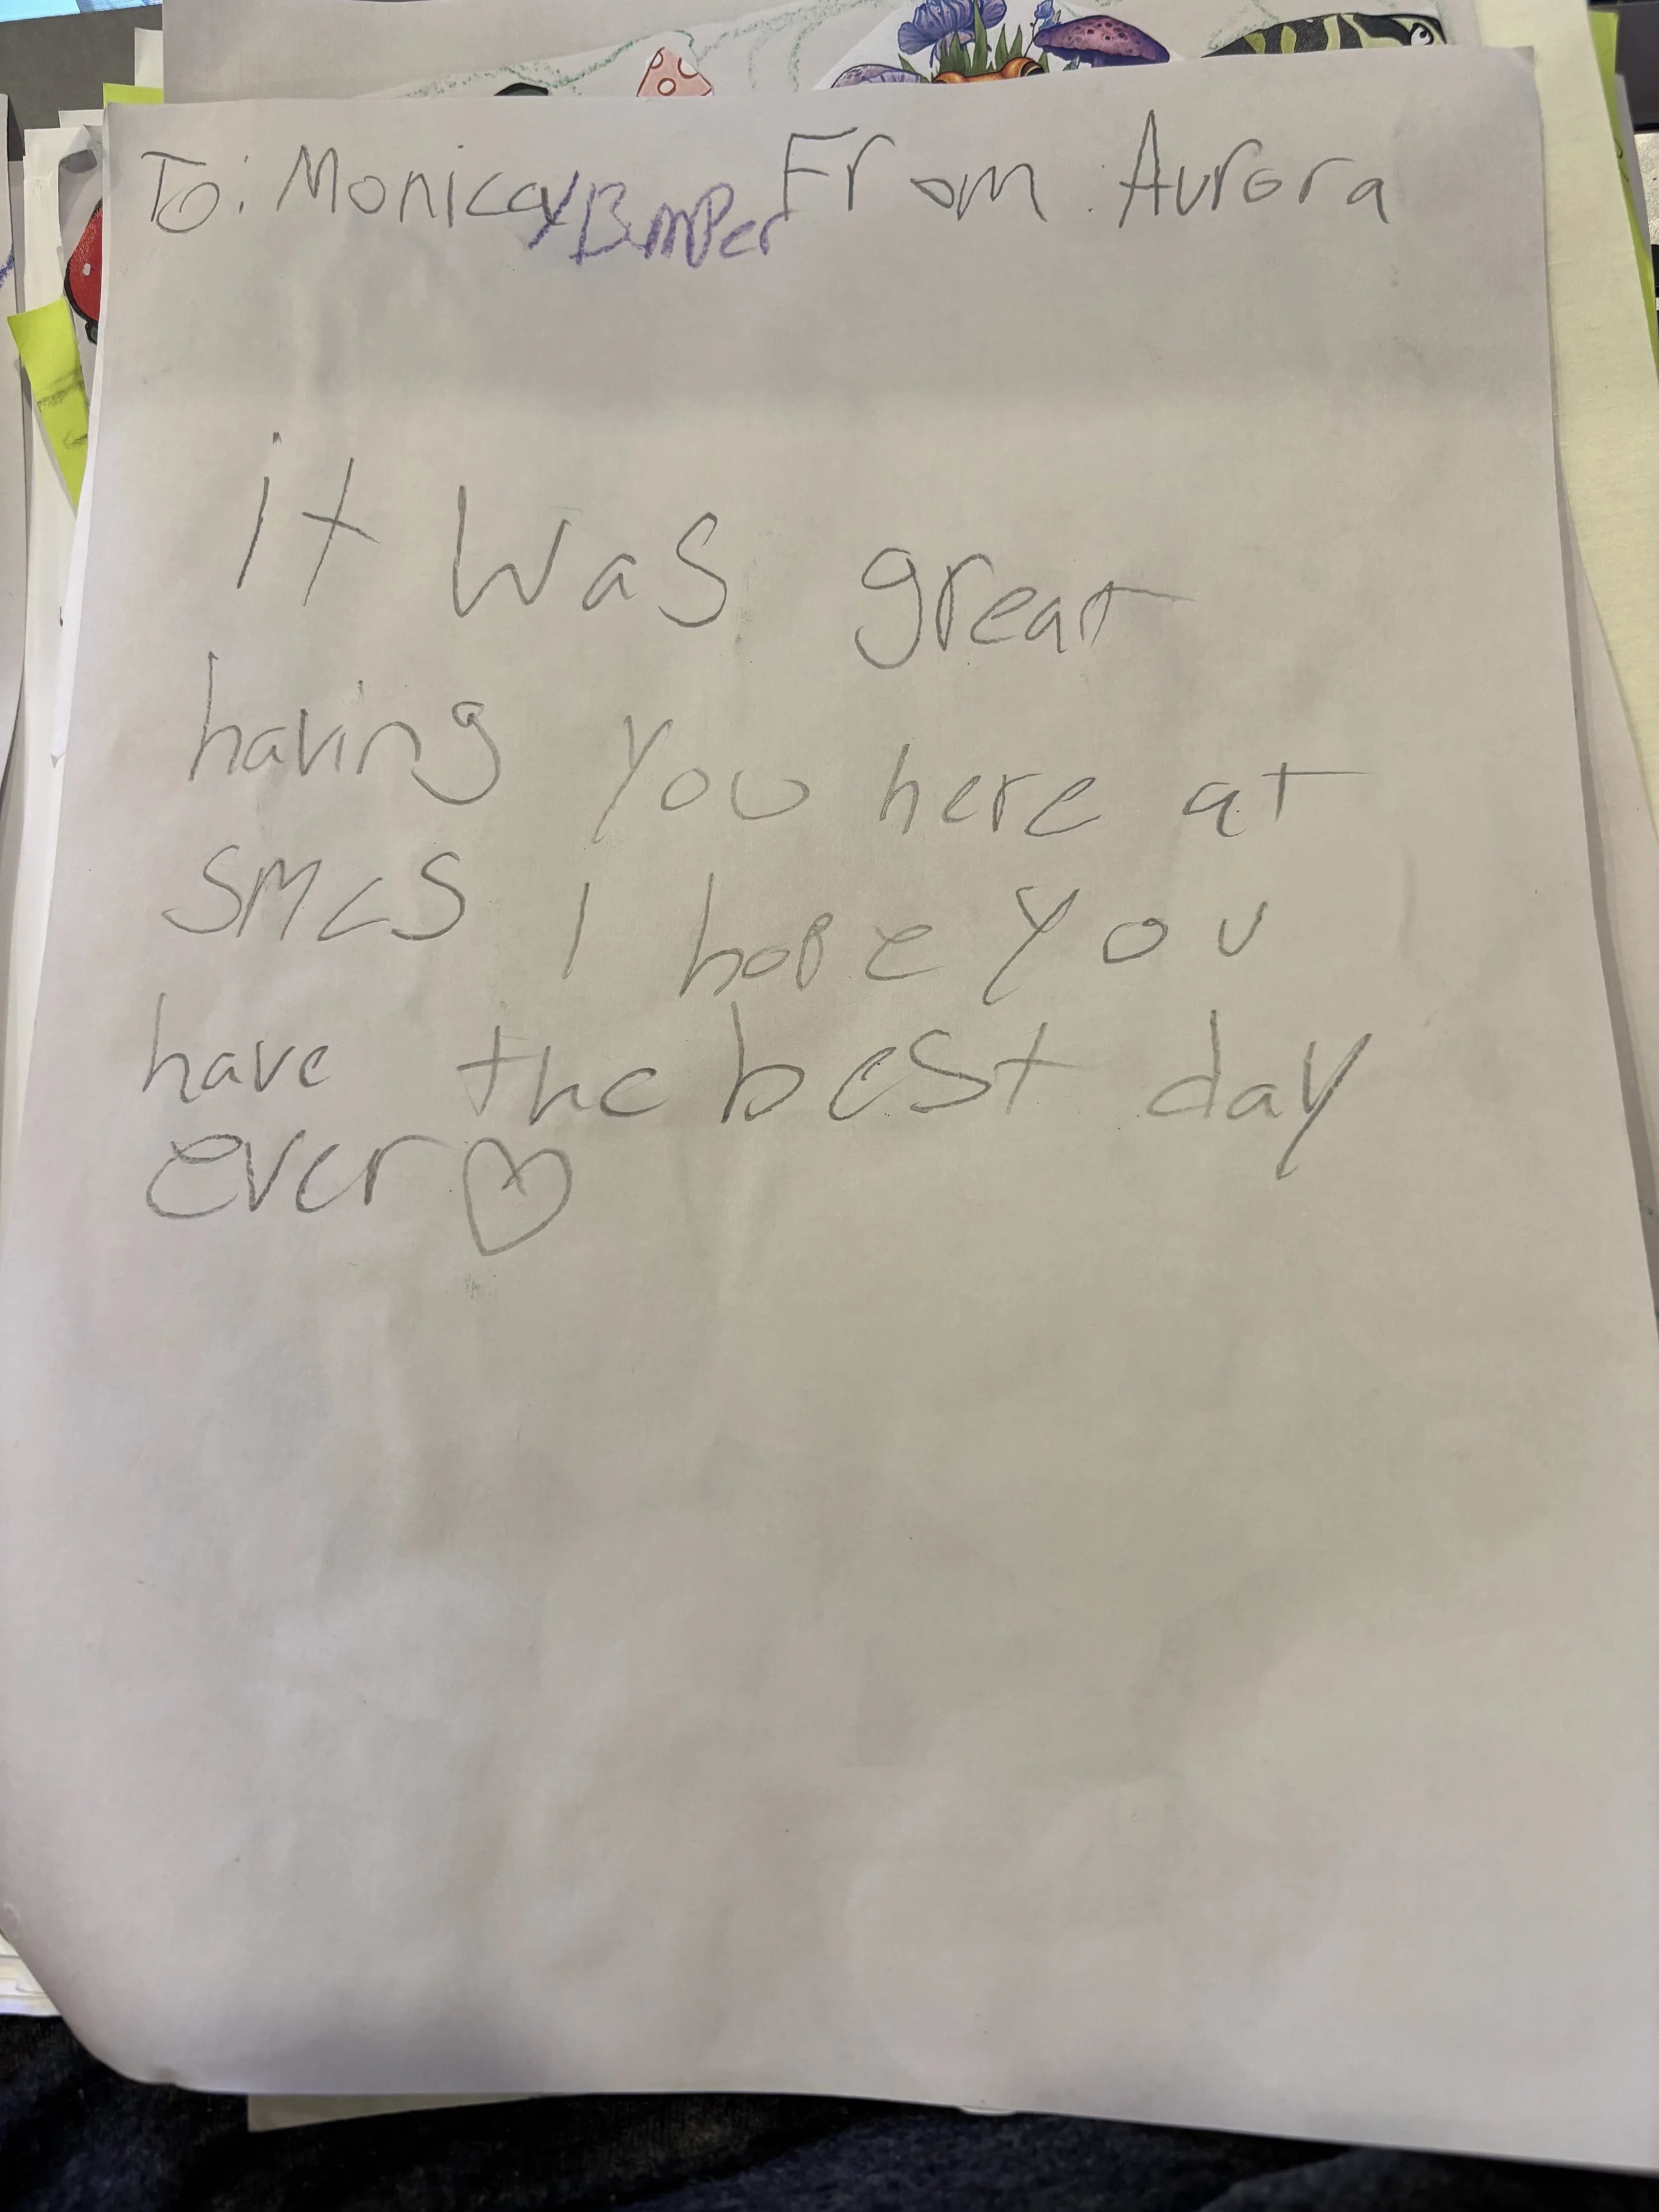 To: Monica/Bmper From: Aurora
it was great
having you here at
SMCS I hope you
have the best day
ever♡